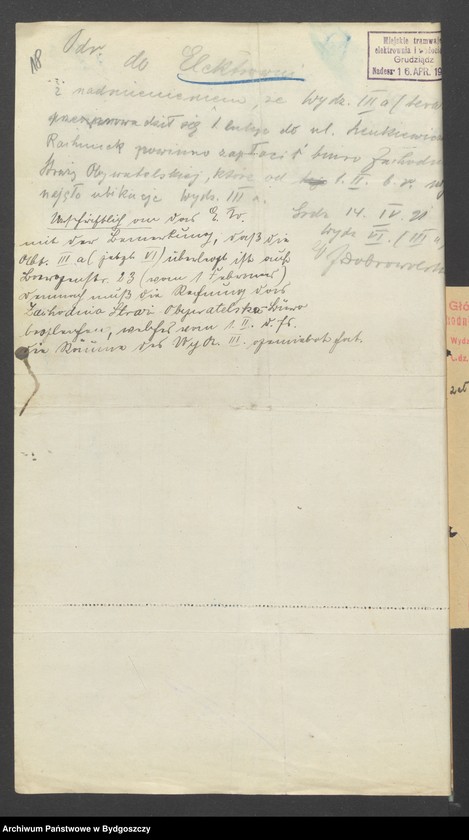 Odr. do Elektrowni
Miejskie tramwaje
elektrownia i wodoci
Grudziądz
Nadesz 16. APR. 19
z nadmienieniem, że Wydz. III a (teraz
przeprowadził się 1 lutego do ul. Sienkiewicza
Rachunek powinno zapłacić biuro Zachodn
Straży Obywatelskiej, które od 1. II. b. r.
najęło ubikacje Wydz. III a.
Grdz. 14. IV. 21
Wydz. VI. (III a)
Urschriftlich an das E. W.
mit der Bemerkung, daß die
Abt. III a (jetzt VI) überlegt ist auf
23 (vom 1 Februar)
demnach muß die Rechnung das
Zachodnia Straż Obywatelska-Büro
bezahlen, welches vom 1. II. d. Js.
die Räume des Wydz. III. gemietet hat.
Wydz
Archiwum Państwowe w Bydgoszczy